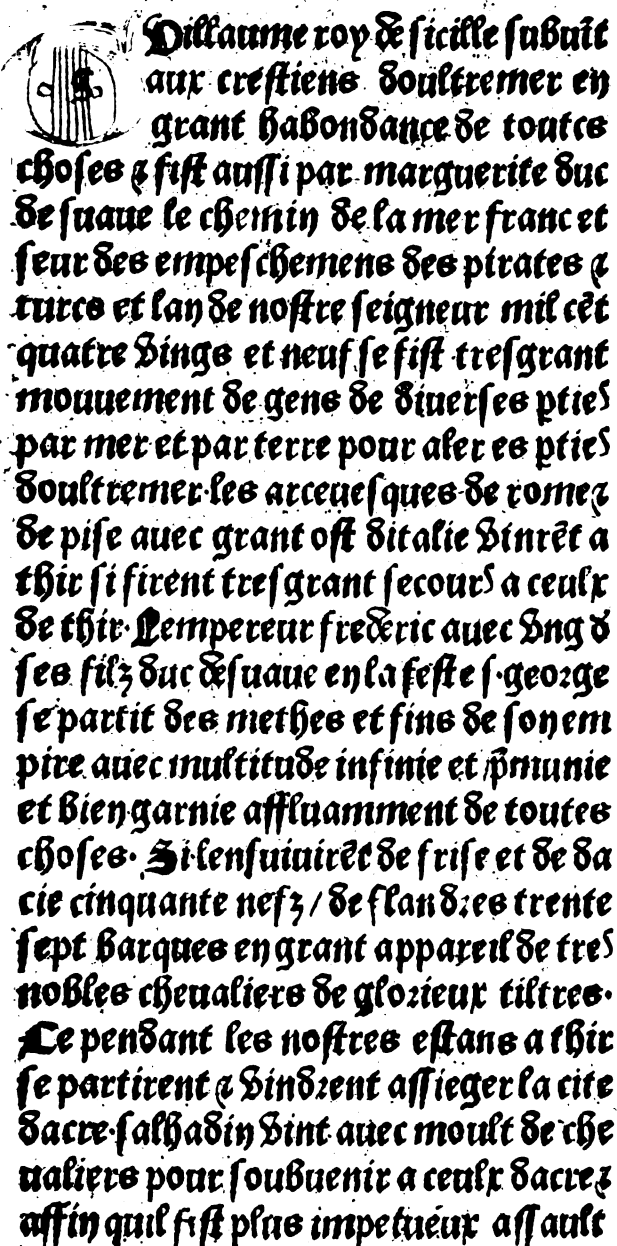 Guillaume roy de sicille subuīt
aux crestiens doultremer en
grant habondance de toutes
choses ⁊ fist aussi par marguerite duc
de suaue le chemin de la mer franc et
seur des empeschemens des pirates ⁊
turcs et lan de nostre seigneur mil cēt
quatre vings et neuf se fist tresgrant
mouuement de gens de diuerses ꝑties
par mer et par terre pour aler es ꝑties
doultremer les arceuesques de rome ⁊
de pise auec grant ost ditalie vinrēt a
thir si firent tresgrant secours a ceulx
de thir. Lempereur frederic auec vng d̄
ses filz duc de suaue en la feste s. george
se partit des methes et fins de son em
pire auec multitude infinie et p̄munie
et bien garnie affluamment de toutes
choses. Si lensuiuirēt de frise et de da
cie cinquante nefz / de flandres trente
sept barques en grant appareil de tres
nobles cheualiers de glorieux tiltres.
Ce pendant les nostres estans a thir
se partirent ⁊ vindrent assieger la cite
dacre. salhadin vint auec moult de che
ualiers pour soubuenir a ceulx dacre ⁊
affin quil fist plus impetueux assault